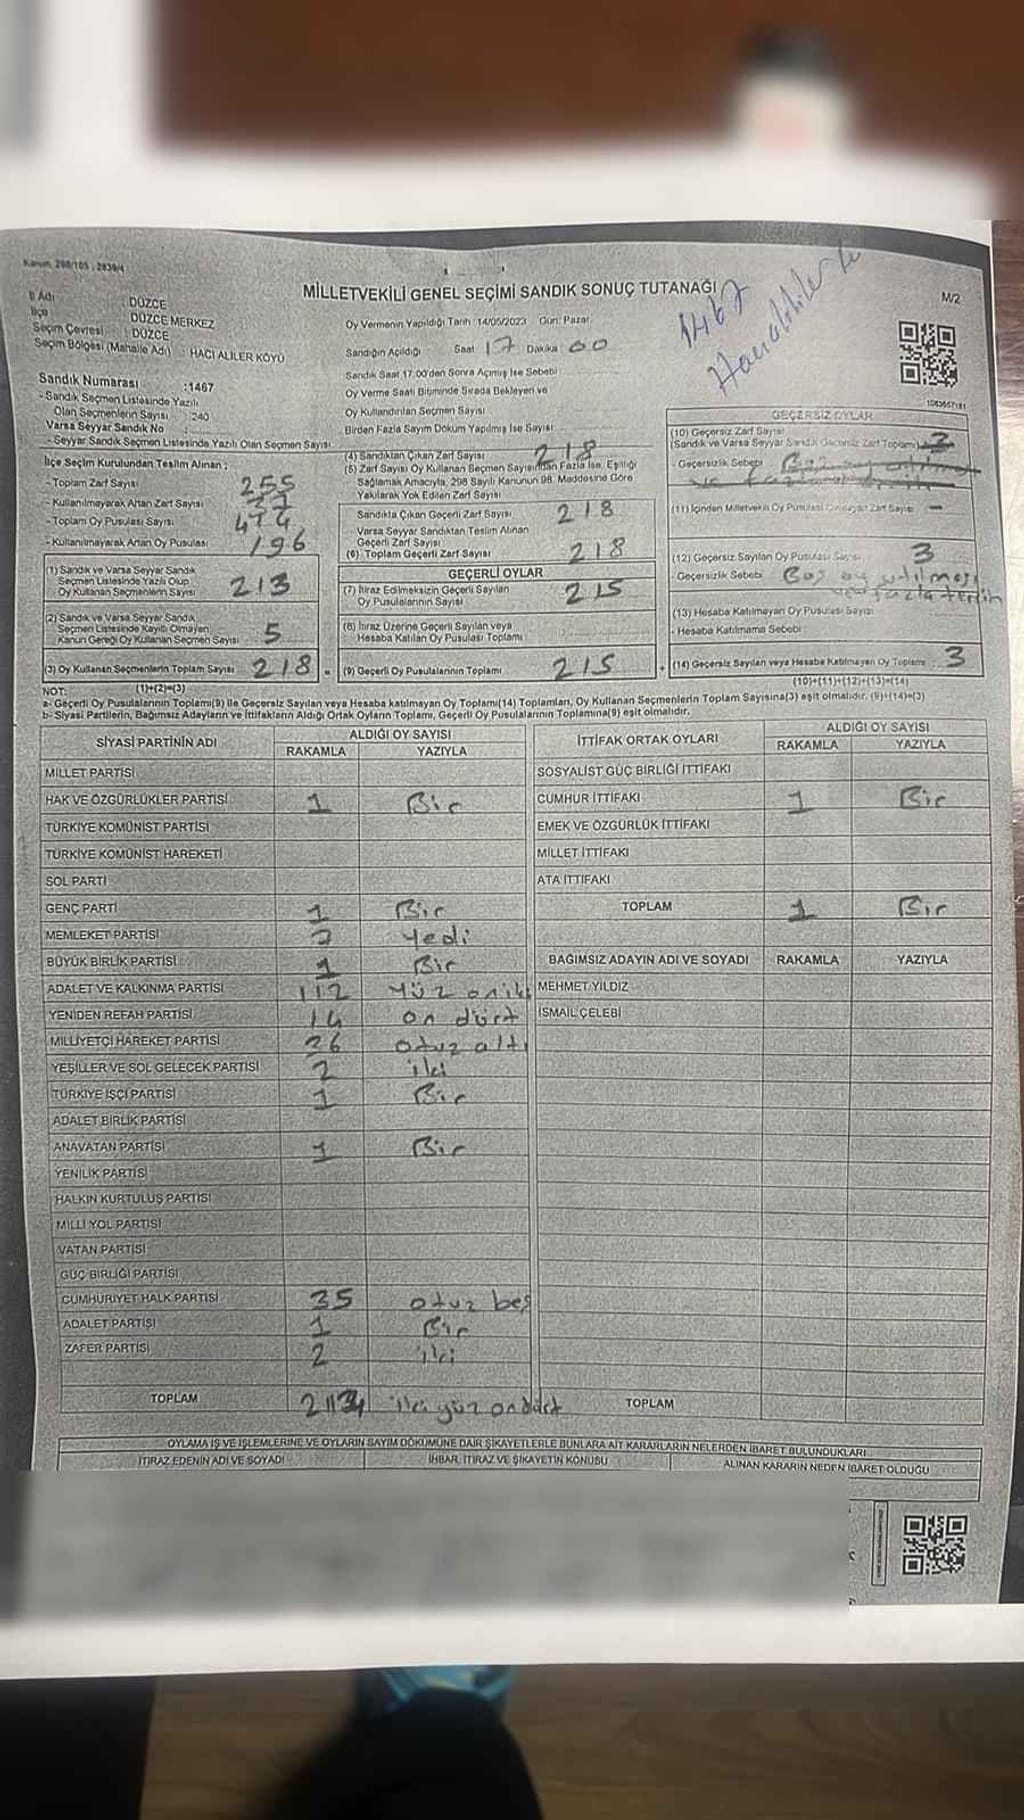 Kanun: 298/105 : 2839/4
MİLLETVEKİLİ GENEL SEÇİMİ SANDIK SONUÇ TUTANAĞI
M/2
1467
İl Adı : DÜZCE
İlçe : DÜZCE MERKEZ
Seçim Çevresi : DÜZCE
Seçim Bölgesi (Mahalle Adı) : HACI ALİLER KÖYÜ
Sandık Numarası :1467
- Sandık Seçmen Listesinde Yazılı
Olan Seçmenlerin Sayısı : 240
Varsa Seyyar Sandık No :
- Seyyar Sandık Seçmen Listesinde Yazılı Olan Seçmen Sayısı
Oy Vermenin Yapıldığı Tarih : 14/05/2023 Gün: Pazar
Sandığın Açıldığı Saat 17 Dakika 00
Sandık Saat 17:00'den Sonra Açılmış İse Sebebi
Oy Verme Saati Bitiminde Sırada Bekleyen ve
Oy Kullandırılan Seçmen Sayısı
Birden Fazla Sayım Döküm Yapılmış İse Sayısı
İlçe Seçim Kurulundan Teslim Alınan :
- Toplam Zarf Sayısı 255
- Kullanılmayarak Artan Zarf Sayısı 37
- Toplam Oy Pusulası Sayısı 414
- Kullanılmayarak Artan Oy Pusulası 196
(1) Sandık ve Varsa Seyyar Sandık
Seçmen Listesinde Yazılı Olup
Oy Kullanan Seçmenlerin Sayısı 213
(2) Sandık ve Varsa Seyyar Sandık
Seçmen Listesinde Kayıtlı Olmayan
Kanun Gereği Oy Kullanan Seçmen Sayısı 5
(3) Oy Kullanan Seçmenlerin Toplam Sayısı 218
(1)+(2)=(3)
(4) Sandıktan Çıkan Zarf Sayısı 218
(5) Zarf Sayısı Oy Kullanan Seçmen Sayısından Fazla İse, Eşitliği
Sağlamak Amacıyla, 298 Sayılı Kanunun 98. Maddesine Göre
Yakılarak Yok Edilen Zarf Sayısı
Sandıkta Çıkan Geçerli Zarf Sayısı 218
Varsa Seyyar Sandıktan Teslim Alınan
Geçerli Zarf Sayısı
(6) Toplam Geçerli Zarf Sayısı 218
GEÇERLİ OYLAR
(7) İtiraz Edilmeksizin Geçerli Sayılan
Oy Pusulalarının Sayısı 215
(8) İtiraz Üzerine Geçerli Sayılan veya
Hesaba Katılan Oy Pusulası Toplamı
(9) Geçerli Oy Pusulalarının Toplamı 215
1083657181
GEÇERSİZ OYLAR
(10) Geçersiz Zarf Sayısı
(Sandık ve Varsa Seyyar Sandık Geçersiz Zarf Toplamı) 3
- Geçersizlik Sebebi
(11) İçinden Milletvekili Oy Pusulası Çıkmayan Zarf Sayısı -
(12) Geçersiz Sayılan Oy Pusulası Sayısı 3
- Geçersizlik Sebebi Boş oy atılması
ve fazla tercih
(13) Hesaba Katılmayan Oy Pusulası Sayısı
- Hesaba Katılmama Sebebi
(14) Geçersiz Sayılan veya Hesaba Katılmayan Oy Toplamı 3
(10)+(11)+(12)+(13)=(14)
NOT:
a- Geçerli Oy Pusulalarının Toplamı(9) ile Geçersiz Sayılan veya Hesaba katılmayan Oy Toplamı(14) Toplamları, Oy Kullanan Seçmenlerin Toplam Sayısına(3) eşit olmalıdır. (9)+(14)=(3)
b- Siyasi Partilerin, Bağımsız Adayların ve İttifakların Aldığı Ortak Oyların Toplamı, Geçerli Oy Pusulalarının Toplamına(9) eşit olmalıdır.
SİYASİ PARTİNİN ADI ALDIĞI OY SAYISI
RAKAMLA YAZIYLA
MİLLET PARTİSİ
HAK VE ÖZGÜRLÜKLER PARTİSİ 1 Bir
TÜRKİYE KOMÜNİST PARTİSİ
TÜRKİYE KOMÜNİST HAREKETİ
SOL PARTİ
GENÇ PARTİ 1 Bir
MEMLEKET PARTİSİ 7 Yedi
BÜYÜK BİRLİK PARTİSİ 1 Bir
ADALET VE KALKINMA PARTİSİ 112 Yüz oniki
YENİDEN REFAH PARTİSİ 14 on dört
MİLLİYETÇİ HAREKET PARTİSİ 36 otuz altı
YEŞİLLER VE SOL GELECEK PARTİSİ 2 iki
TÜRKİYE İŞÇİ PARTİSİ 1 Bir
ADALET BİRLİK PARTİSİ
ANAVATAN PARTİSİ 1 Bir
YENİLİK PARTİSİ
HALKIN KURTULUŞ PARTİSİ
MİLLİ YOL PARTİSİ
VATAN PARTİSİ
GÜÇ BİRLİĞİ PARTİSİ
CUMHURİYET HALK PARTİSİ 35 otuz beş
ADALET PARTİSİ 1 Bir
ZAFER PARTİSİ 2 iki
TOPLAM iki yüz ondört
İTTİFAK ORTAK OYLARI ALDIĞI OY SAYISI
RAKAMLA YAZIYLA
SOSYALİST GÜÇ BİRLİĞİ İTTİFAKI
CUMHUR İTTİFAKI 1 Bir
EMEK VE ÖZGÜRLÜK İTTİFAKI
MİLLET İTTİFAKI
ATA İTTİFAKI
TOPLAM 1 Bir
BAĞIMSIZ ADAYIN ADI VE SOYADI RAKAMLA YAZIYLA
MEHMET YILDIZ
İSMAİL ÇELEBİ
TOPLAM
OYLAMA İŞ VE İŞLEMLERİNE VE OYLARIN SAYIM DÖKÜMÜNE DAİR ŞİKAYETLERLE BUNLARA AİT KARARLARIN NELERDEN İBARET BULUNDUKLARI
İTİRAZ EDENİN ADI VE SOYADI İHBAR, İTİRAZ VE ŞİKAYETİN KONUSU ALINAN KARARIN NEDEN İBARET OLDUĞU